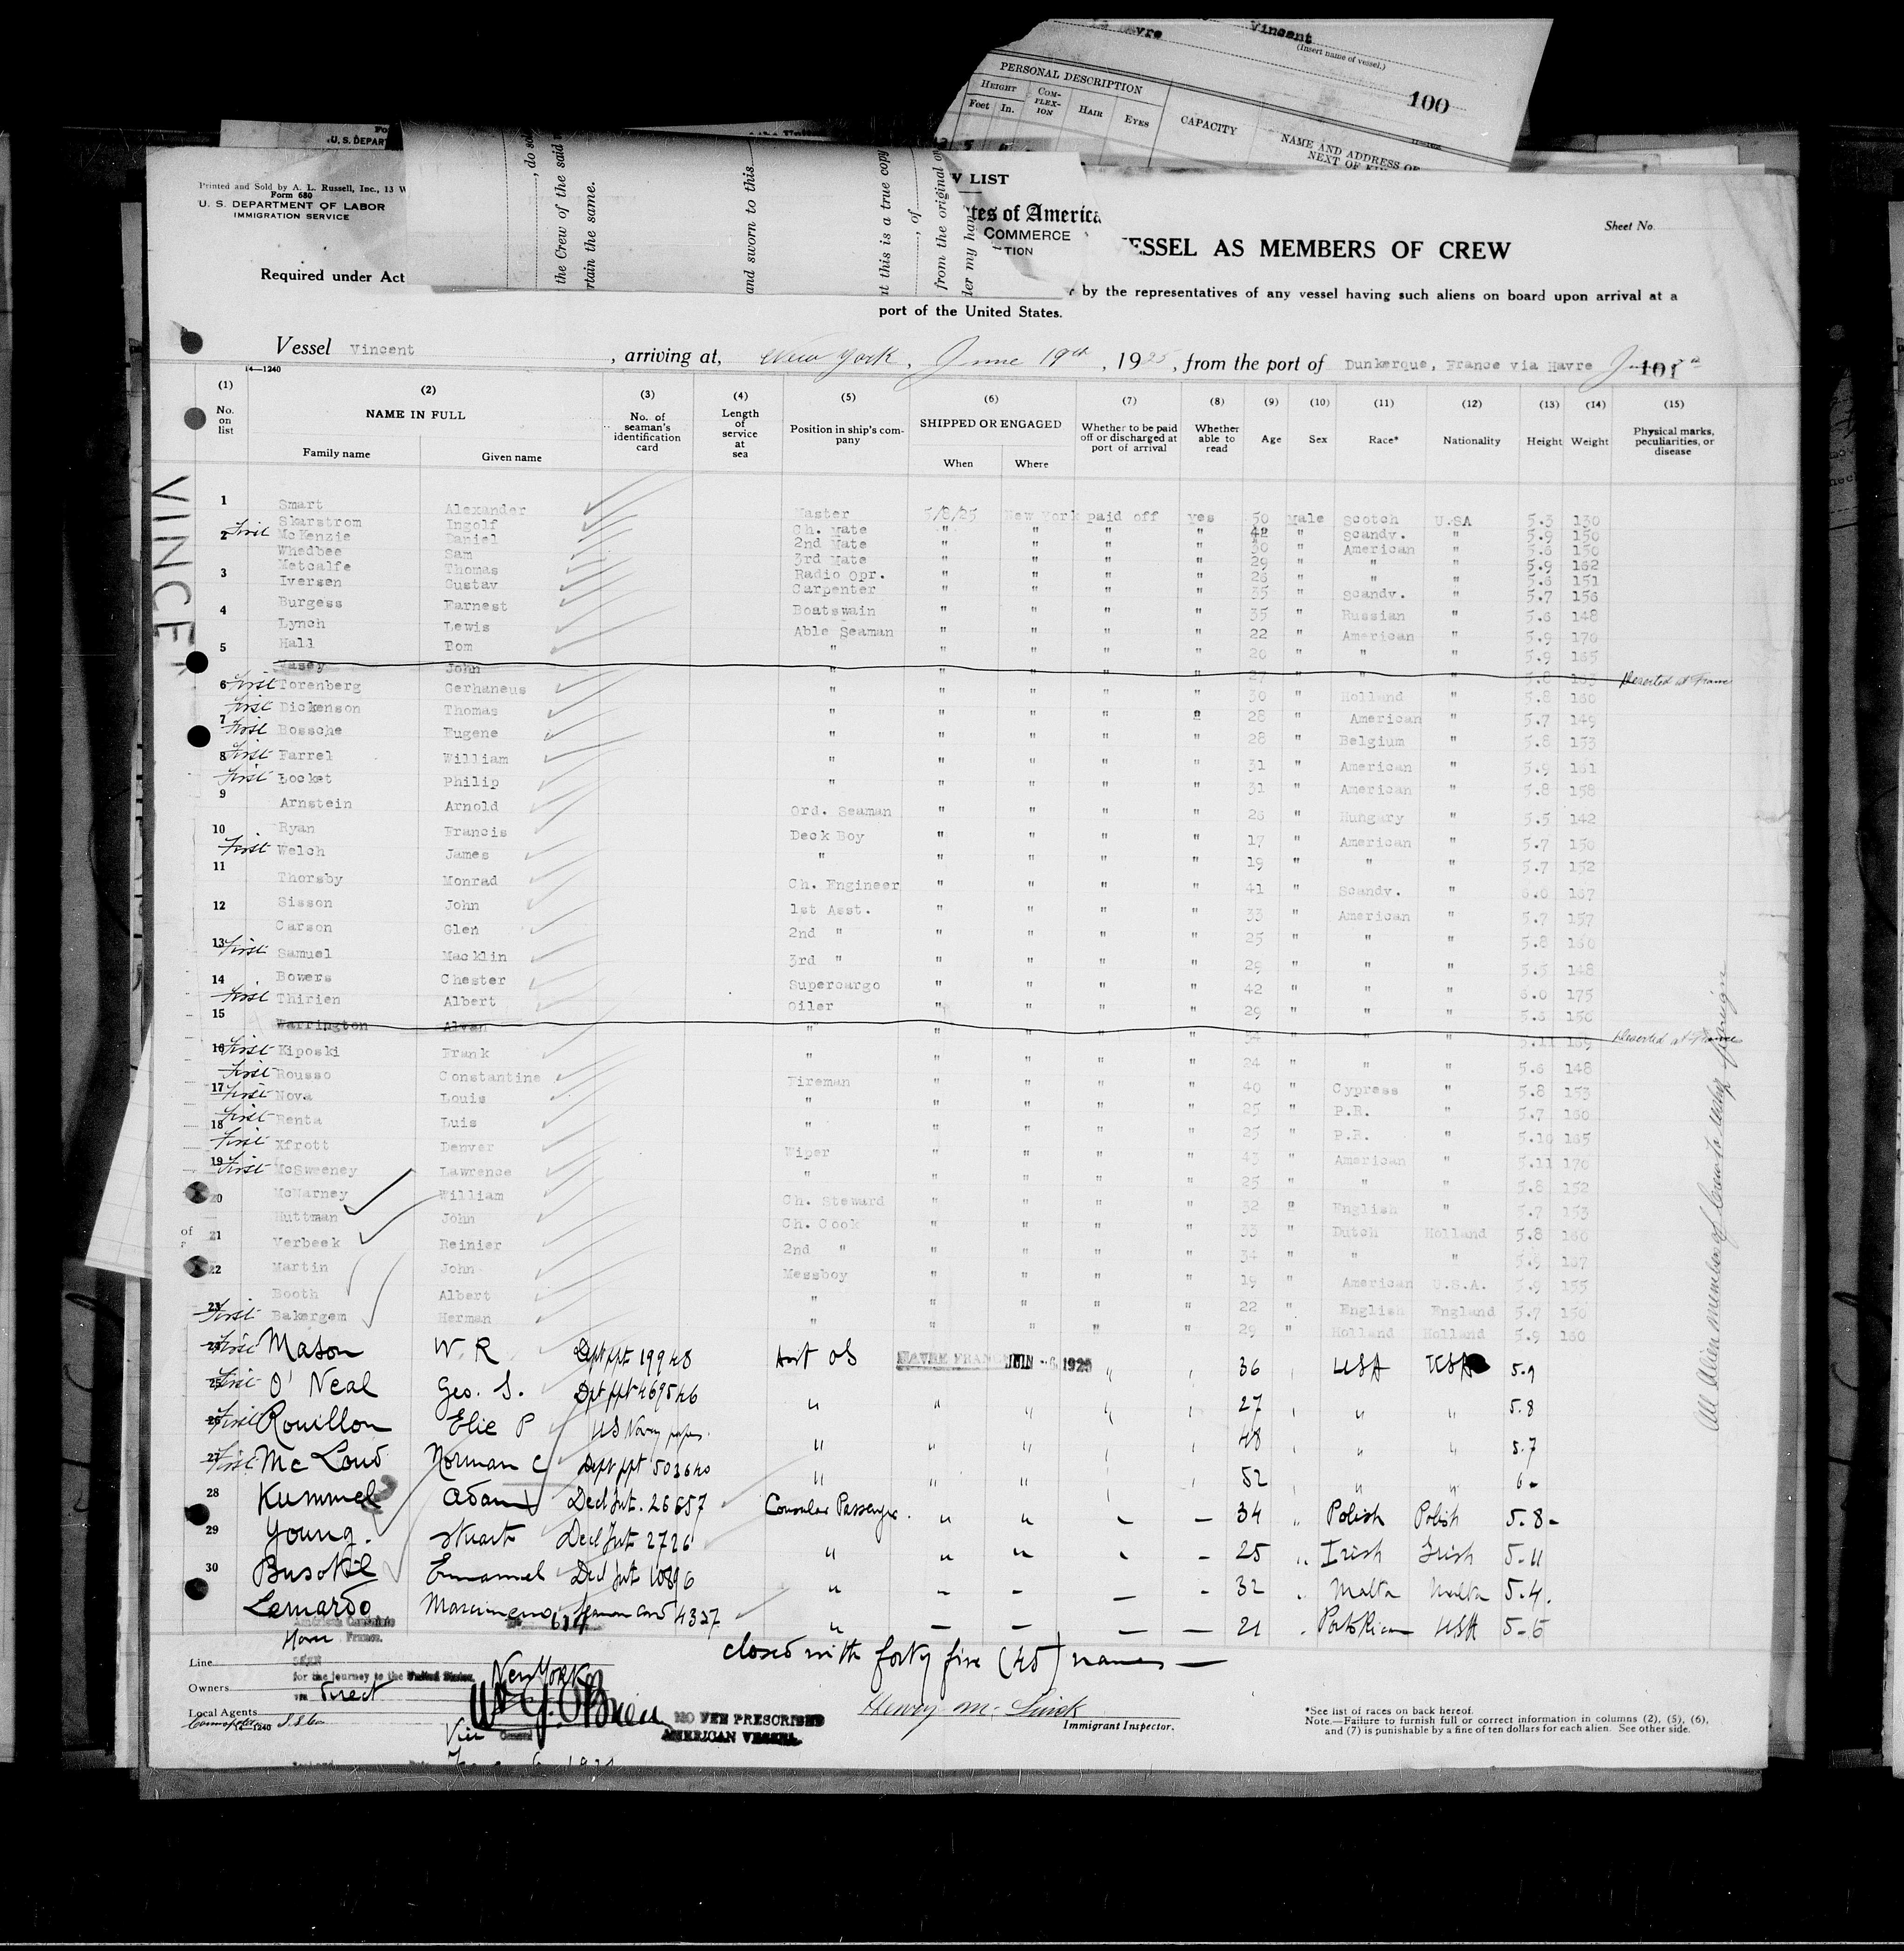 Vincent
(Insert name of vessel.)
PERSONAL DESCRIPTION
HEIGHT COM-PLEX-ION HAIR EYES CAPACITY NAME AND ADDRESS OF NEXT OF
Feet In.
100
Printed and Sold by A. L. Russell, Inc., 13 W
Form 680
U. S. DEPARTMENT OF LABOR
IMMIGRATION SERVICE
the Crew of the said
rtain the same.
and sworn to this
t this is a true copy
from the original
W LIST
tes of America
COMMERCE
TION
Sheet No.
ESSEL AS MEMBERS OF CREW
Required under Act
by the representatives of any vessel having such aliens on board upon arrival at a
port of the United States.
Vessel Vincent, arriving at, New York, June 19th, 1925, from the port of Dunkerque, France via Havre
101
14—1240
(1) (2) (3) (4) (5) (6) (7) (8) (9) (10) (11) (12) (13) (14) (15)
No. on list NAME IN FULL No. of seaman's identification card Length of service at sea Position in ship's company SHIPPED OR ENGAGED Whether to be paid off or discharged at port of arrival Whether able to read Age Sex Race* Nationality Height Weight Physical marks, peculiarities, or disease
Family name Given name When Where
VINCE
1 Smart Alexander Master 5/8/25 New York paid off yes 50 Male Scotch U.SA 5.3 130
Skarstrom Ingolf Ch. Mate " " " " 42 " Scandv. " 5.9 150
2 First McKenzie Daniel 2nd Mate " " " " 30 " American " 5.6 150
Whedbee Sam 3rd Mate " " " " 29 " " " 5.9 162
Metcalfe Thomas Radio Opr. " " " " 26 " " " 5.6 151
3 Iversen Gustav Carpenter " " " " 35 " Scandv. " 5.7 156
Burgess Earnest Boatswain " " " " 35 " Russian " 5.6 148
4 Lynch Lewis Able Seaman " " " " 22 " American " 5.9 170
5 Hall Bom " " " " " 20 " " " 5.9 165
Vasey John " " " " " 27 " " " 5.8 Deserted at France
6 First Torenberg Gerhaneus " " " " " 30 " Holland " 5.8 160
First Dickenson Thomas " " " " " 28 " American " 5.7 149
7 First Bossche Eugene " " " " " 28 " Belgium " 5.8 153
8 First Farrel William " " " " " 31 " American " 5.9 161
First Locket Philip " " " " " 31 " American " 5.8 158
9 Arnstein Arnold Ord. Seaman " " " " 26 " Hungary " 5.5 142
10 Ryan Francis Deck Boy " " " " 17 " American " 5.7 150
First Welch James " " " " " 19 " " " 5.7 152
11 Thorsby Monrad Ch. Engineer " " " " 41 " Scandv. " 6.0 167
12 Sisson John 1st Asst. " " " " 33 " American " 5.7 157
Carson Glen 2nd " " " " " 25 " " " 5.8 160
13 First Samuel Macklin 3rd " " " " " 29 " " " 5.5 148
14 Bowers Chester Supercargo " " " " 42 " " " 6.0 175
First Thirien Albert Oiler " " " " 29 " " " 5.6 156
15 Warrington Alvan " " " " " 34 " " " 5.11 169 Deserted at France
16 First Kiposki Frank " " " " " 24 " " " 5.6 148
First Rousso Constantine Fireman " " " " 40 " Cypress " 5.8 153
17 First Nova Louis " " " " " 25 " P.R. " 5.7 160
18 First Renta Luis " " " " " 25 " P.R. " 5.10 165
First Xfrott Denver Wiper " " " " 43 " American " 5.11 170
19 First McSweeney Lawrence " " " " " 25 " " " 5.8 152
20 McNarney William Ch. Steward " " " " 32 " English " 5.7 153
Huttman John Ch. Cook " " " " 33 " Dutch Holland 5.8 160
21 Verbeek Reinier 2nd " " " " " 34 " " " 5.9 167
22 Martin John Messboy " " " " 19 " American U.S.A. 5.9 155
Booth Albert " " " " " 22 " English England 5.7 150
23 First Bakergem Herman " " " " " 29 " Holland Holland 5.9 160
24 First Mason W. R Dept ppt 19948 Asst OS HAVRE FRANCE JUN -6 1925 " " 36 USA USA 5.9
25 First O'Neal Geo. S. Dpt ppt 469546 " " " " " 27 " " 5.8
26 First Rouillon Elie P US Navy papers. " " " " " 48 " " 5.7
27 First Mc Loud Norman C Dept ppt 502640 " " " " 52 " " 6-
28 Kummel Adam Decl Int. 26657 Consular Passenger. " " - - 34 " Polish Polish 5.8-
29 Young. Stuart Decl Int 2726 " " " - - 25 " Irish Irish 5-11
30 Busotil Emanuel Decl Int 10896 " - - - 32 " Malta Malta 5.4.
Lemardo Marcimeno Seaman Card 4327 " - - - - 21 " PortoRican USA 5-6
All Alien members of Crew to reship foreign
American Consulate
Havre France.
SEEN
for the journey to the United States.
via Direct
New York
closed with forty five (45) names —
Line
Owners
Local Agents
14—1240
Wm. J. O'Brien
Vice Consul
NO FEE PRESCRIBED
AMERICAN VESSEL.
Immigrant Inspector.
*See list of races on back hereof.
Note.—Failure to furnish full or correct information in columns (2), (5), (6),
and (7) is punishable by a fine of ten dollars for each alien. See other side.